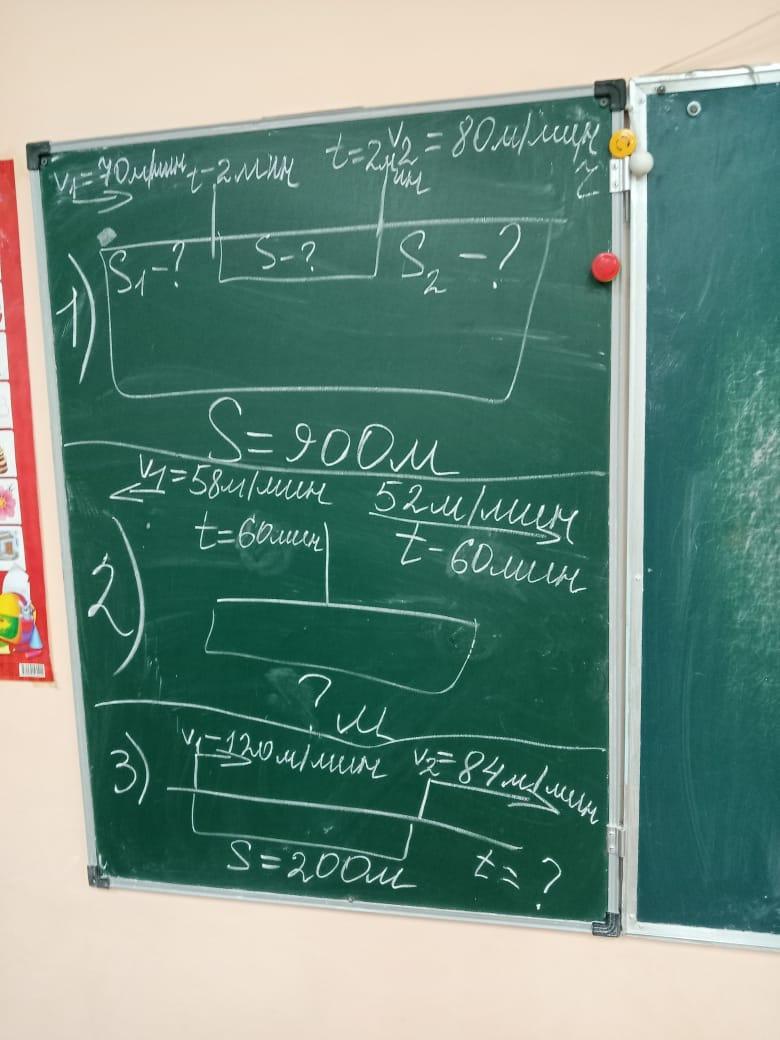 v1=70м/мин t-2мин t=2мин v2=80м/мин
1) S1-? S-? S2-?
S=900м
v1=58м/мин 52м/мин
t=60мин t-60мин
2)
? м
3) v1-120м/мин v2=84м/мин
S=200м t=?